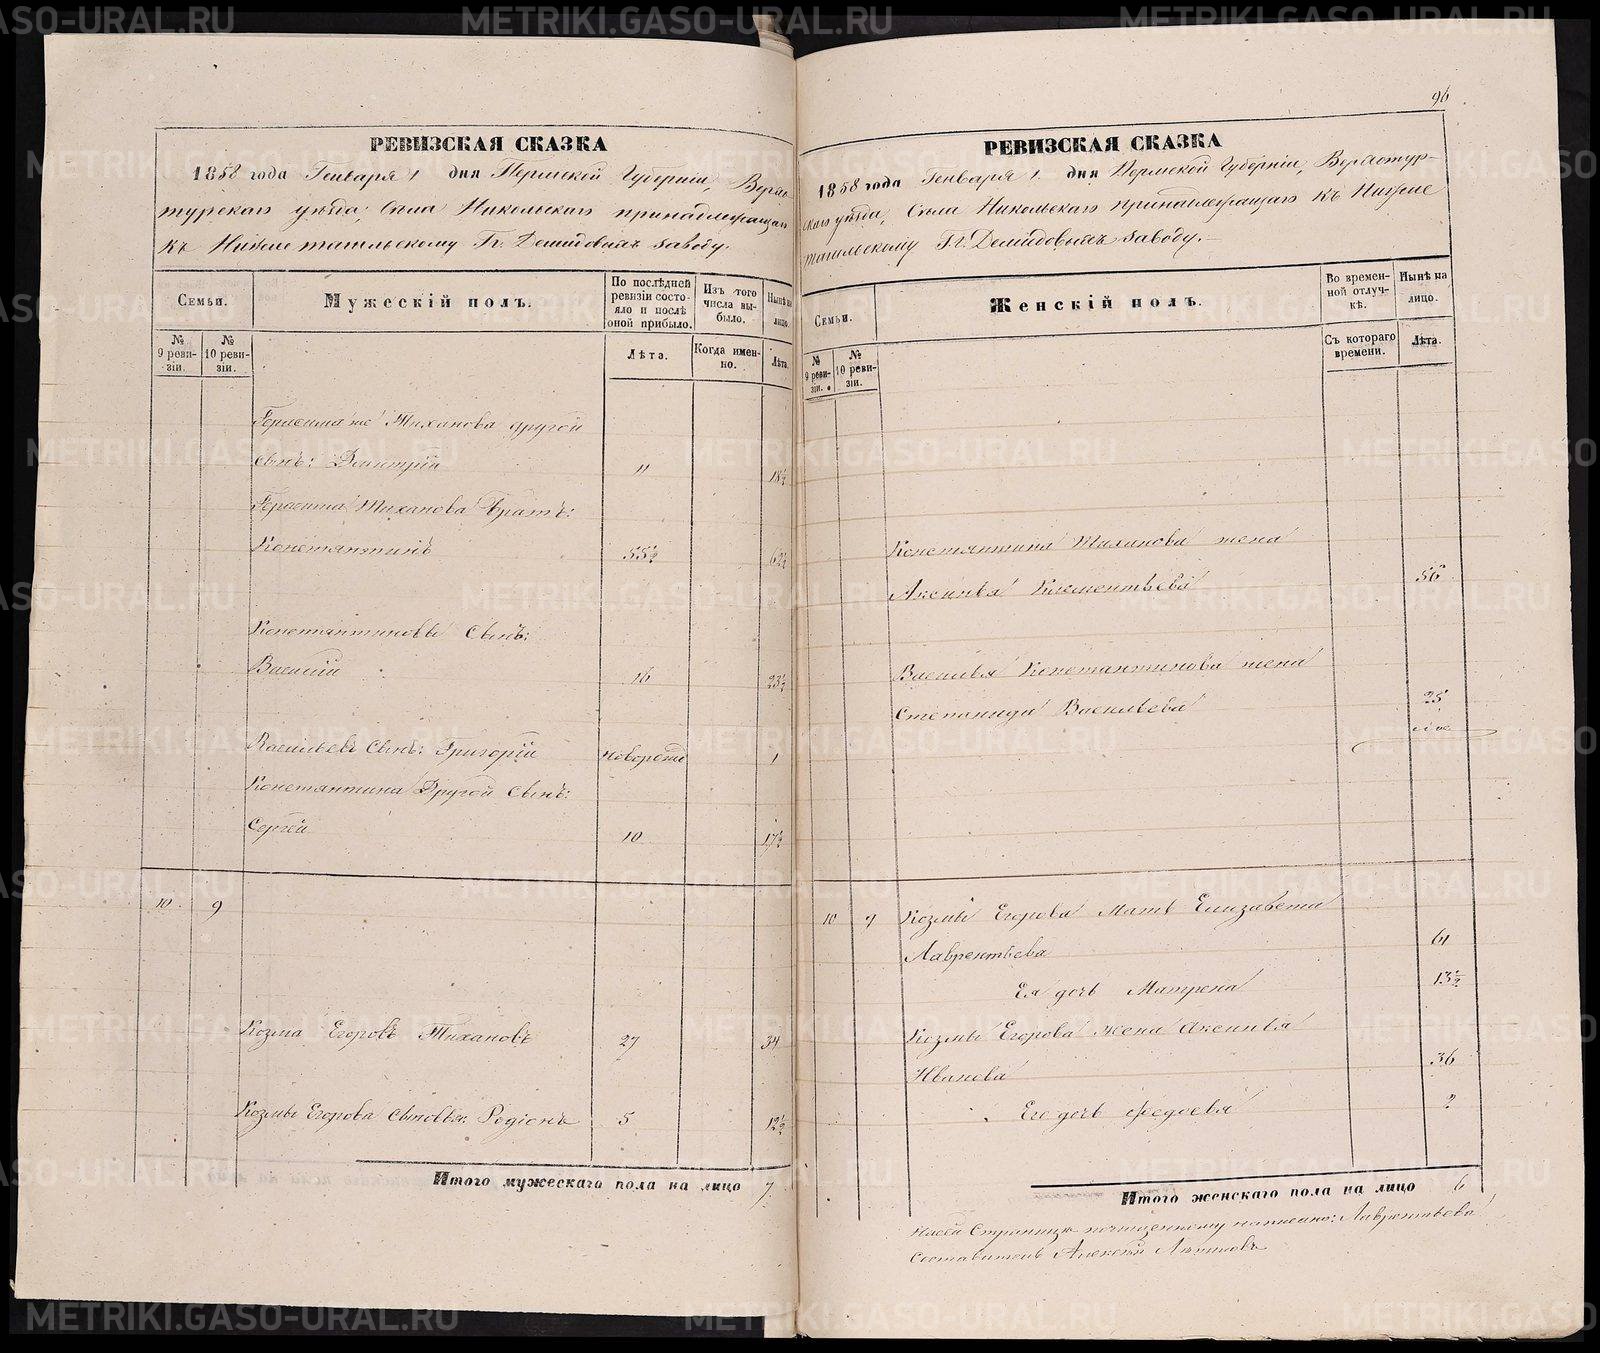 96
РЕВИЗСКАЯ СКАЗКА
1858 года Генваря 1 дня Пермской Губерніи, Верхо-
турскаго уѣзда, Села Никольскаго принадлежащаго
къ Нижнетагильскому Гг. Демидовыхъ заводу.
Семьи.
Мужескій полъ.
По послѣдней ревизіи состо-
яло и послѣ
оной прибыло.
Изъ того
числа вы-
было.
Нынѣ на
лицо.
№
9 реви-
зіи.
№
10 реви-
зіи.
Лѣта.
Когда имен-
но.
Лѣта.
Герасима же Тиханова другой
сынъ: Дмитрій 11 18½
Герасима Тиханова братъ:
Константинъ 55½ 62½
Константиновъ Сынъ:
Василій 16 23½
Васильевъ Сынъ: Григорій новорожд 1
Константина Другой Сынъ:
Сергѣй 10 17½
10 9
Козма Егоровъ Тихановъ 27 34
Козмы Егорова Сыновья: Родіонъ 5 12½
Итого мужескаго пола на лицо 7
РЕВИЗСКАЯ СКАЗКА
1858 года Генваря 1 дня Пермской Губерніи, Верхотур-
скаго уѣзда, Села Никольскаго принадлежащаго къ Нижне
тагильскому Гг. Демидовыхъ заводу.
Семьи.
Женскій полъ.
Во времен-
ной отлуч-
кѣ.
Нынѣ на
лицо.
№
9 реви-
зіи.
№
10 реви-
зіи.
Съ котораго
времени.
Лѣта.
Константина Тиханова жена
Аксинья Клементьева 56
Василья Константинова жена
Степанида Васильева 25
10 9 Козмы Егорова Мать Елизавета
Лаврентьева 61
Ея дочь Матрена 13½
Козмы Егорова жена Аксинья
Иванова 36
Его дочь Федосья 2
Итого женскаго пола на лицо 6
На сей Страницѣ почищенному написано: Лаврентьева
Составитель Алексѣй
METRIKI.GASO-URAL.RU